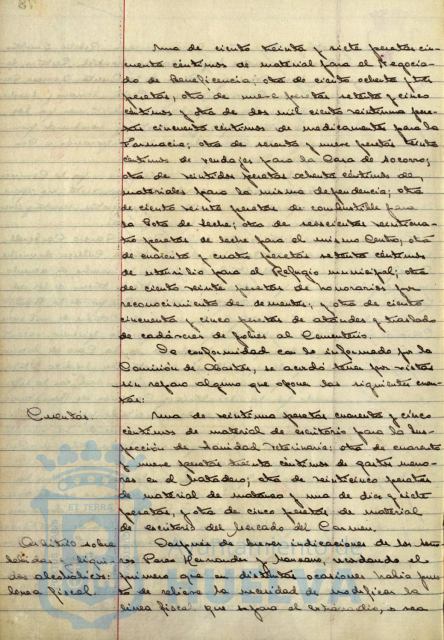 Una de ciento treinta y siete pesetas cin-
cuenta céntimos de material para el Negocia-
do de Beneficencia; otra de ciento ochenta y tres
pesetas, otra de nueve pesetas setenta y cinco
céntimos y otra de dos mil ciento veintiuna pese-
tas cincuenta céntimos de medicamentos para la
Farmacia; otra de sesenta y nueve pesetas treinta
céntimos de vendajes para la Casa de socorro;
otra de veintidos pesetas ochenta céntimos de
materiales para la misma dependencia; otra
de ciento veinte pesetas de combustible para
la Gota de Leche; otra de seiscientas veinticua-
tro pesetas de leche para el mismo Centro; otra
de cuarenta y cuatro pesetas setenta céntimos
de utensilio para el Refugio municipal; otra
de ciento veinte pesetas de honorarios por
reconocimiento de dementes; y otra de ciento
cincuenta y cinco pesetas de ataúdes y traslado
de cadáveres de pobres al Cementerio.
De conformidad con lo informado por la
Comisión de Abastos, se acordó tener por vistas
sin reparo alguno que oponer las siguientes cuen-
tas:
Cuentas.
Una de veintiuna pesetas cuarenta y cinco
céntimos de material de escritorio para la Ins-
pección de Sanidad Veterinaria; otra de cuarenta
y nueve pesetas treinta céntimos de gastos meno-
res en el Matadero; otra de veinticinco pesetas
de material de matanza y una de diez y siete
pesetas, y otra de cinco pesetas de material
de escritorio del Mercado del Carmen.
Arbitrio sobre
bebidas y líqui-
dos alcohólicos:
línea fiscal.
Después de breves indicaciones de los seño-
res Perez Hernandez y Manzano, recordando el
primero que en distintas ocasiones había pues-
to de relieve la necesidad de modificar la
línea fiscal que separa el extrarradio, o sea
ET TERRA
Ayuntamiento de
HUELVA